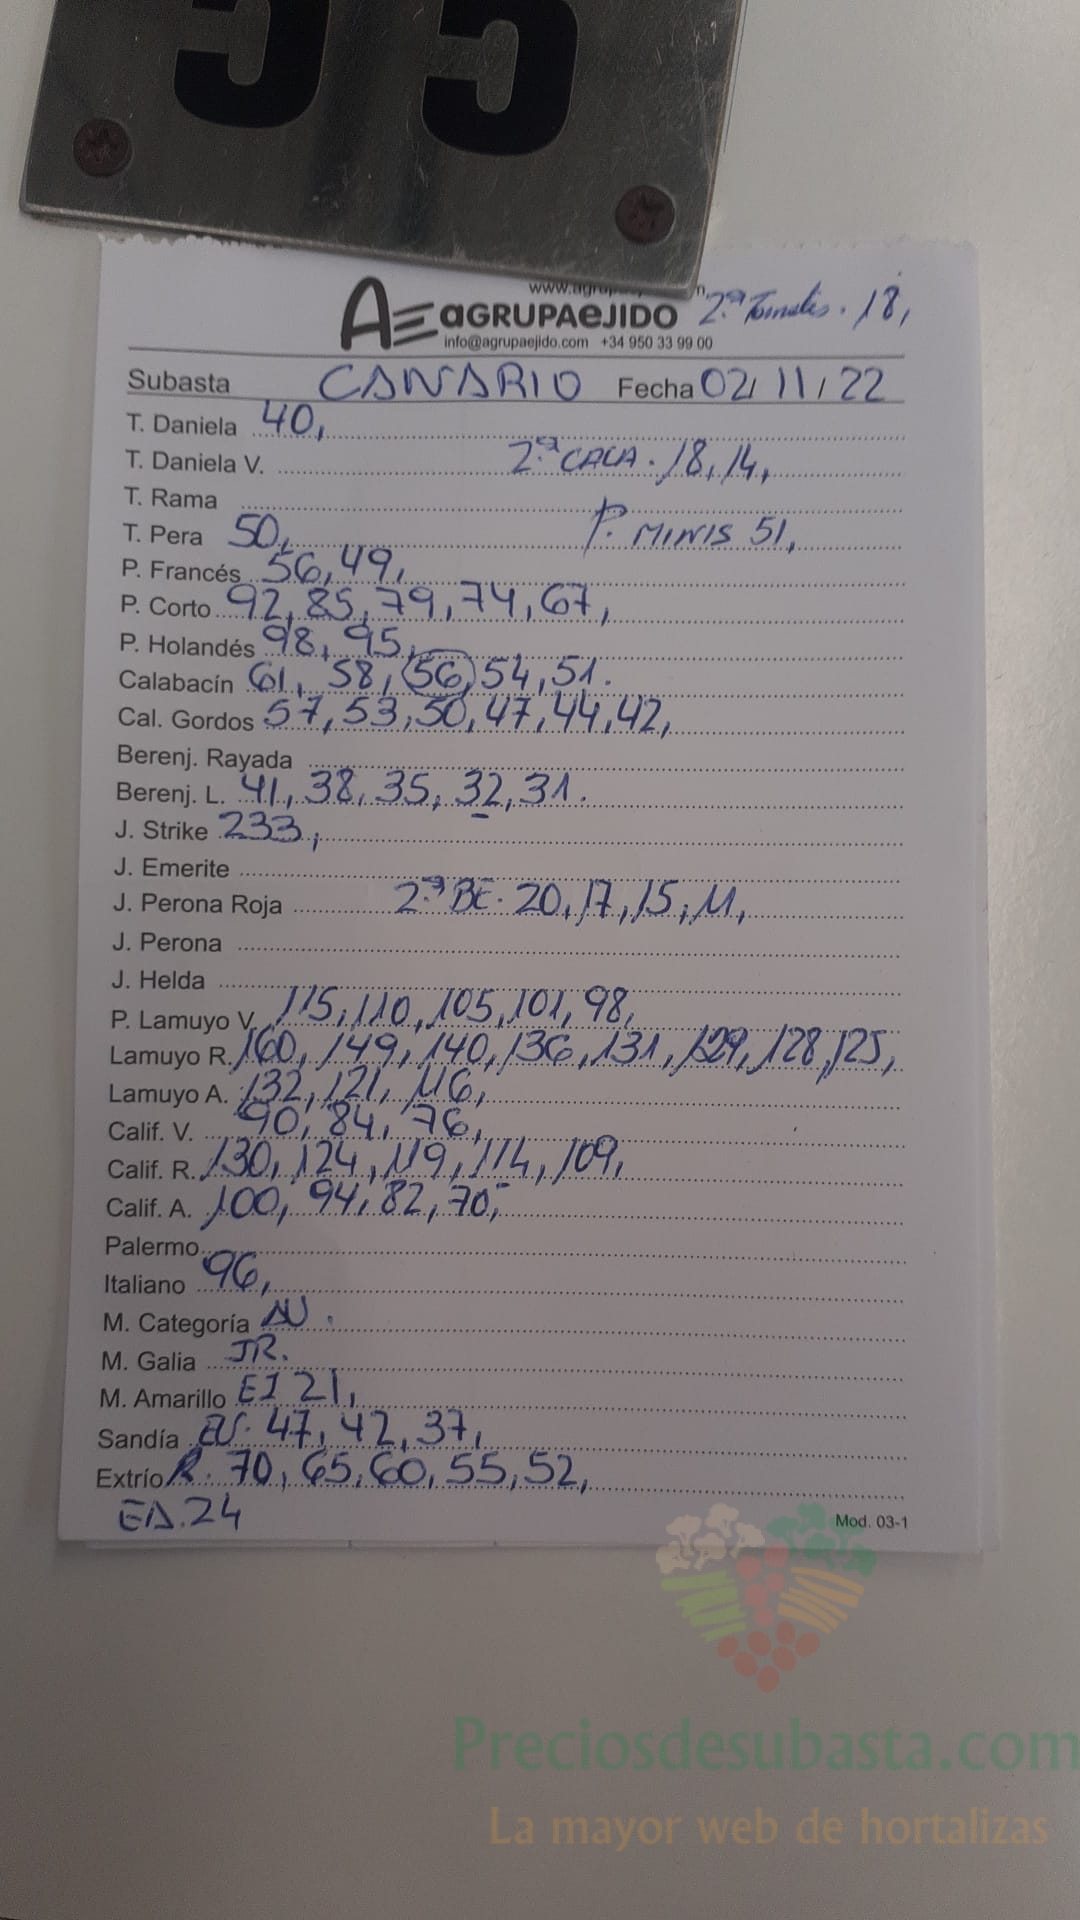 55
www.agrupaejido.com
AGRUPAEJIDO 2.ª Tomates. 18,
info@agrupaejido.com +34 950 33 99 00
Subasta CANARIO Fecha 02/11/22
T. Daniela 40,
T. Daniela V. 2.ª CALA. 18, 14,
T. Rama
T. Pera 50, P. MINIS 51,
P. Francés 56, 49,
P. Corto 92, 85, 79, 74, 67,
P. Holandés 98, 95,
Calabacín 61, 58, 56, 54, 51.
Cal. Gordos 57, 53, 50, 47, 44, 42,
Berenj. Rayada
Berenj. L. 41, 38, 35, 32, 31.
J. Strike 233,
J. Emerite
J. Perona Roja 2.ª BE. 20, 17, 15, 11,
J. Perona
J. Helda
P. Lamuyo V. 115, 110, 105, 101, 98,
Lamuyo R. 160, 149, 140, 136, 131, 129, 128, 125,
Lamuyo A. 132, 121, 116,
Calif. V. 90, 84, 76,
Calif. R. 130, 124, 119, 114, 109,
Calif. A. 100, 94, 82, 70,
Palermo
Italiano 96,
M. Categoría
M. Galia JR.
M. Amarillo EJ 21,
Sandía 47, 42, 37,
Extrío R. 70, 65, 60, 55, 52,
EA. 24
Mod. 03-1
Preciosdesubasta.com
La mayor web de hortalizas